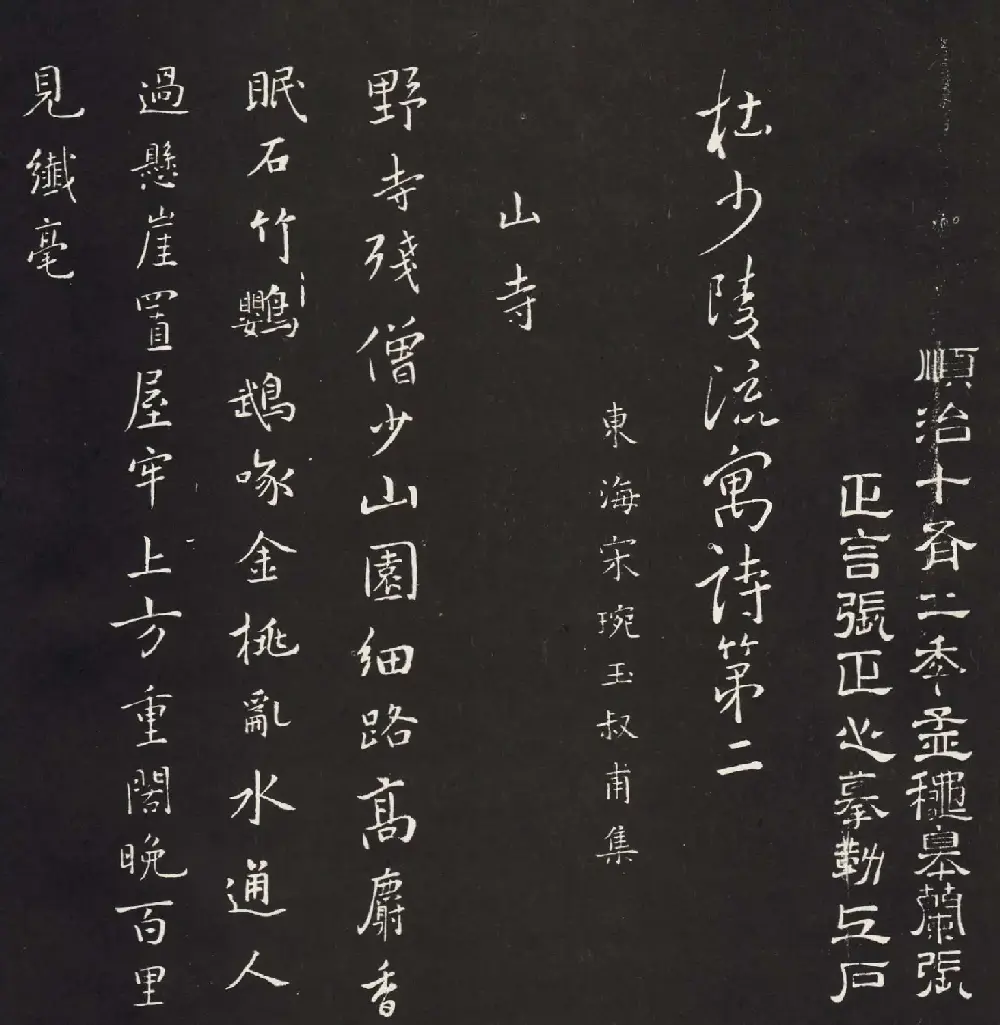 順治十有二秊孟穐皋蘭張
正言張正心摹勒上石
杜少陵流寓詩第二
東海宋琬玉叔甫集
山寺
野寺殘僧少山園細路髙麝香
眠石竹鸚鵡啄金桃亂水通人
過懸崖置屋牢上方重閣晚百里
見纖毫